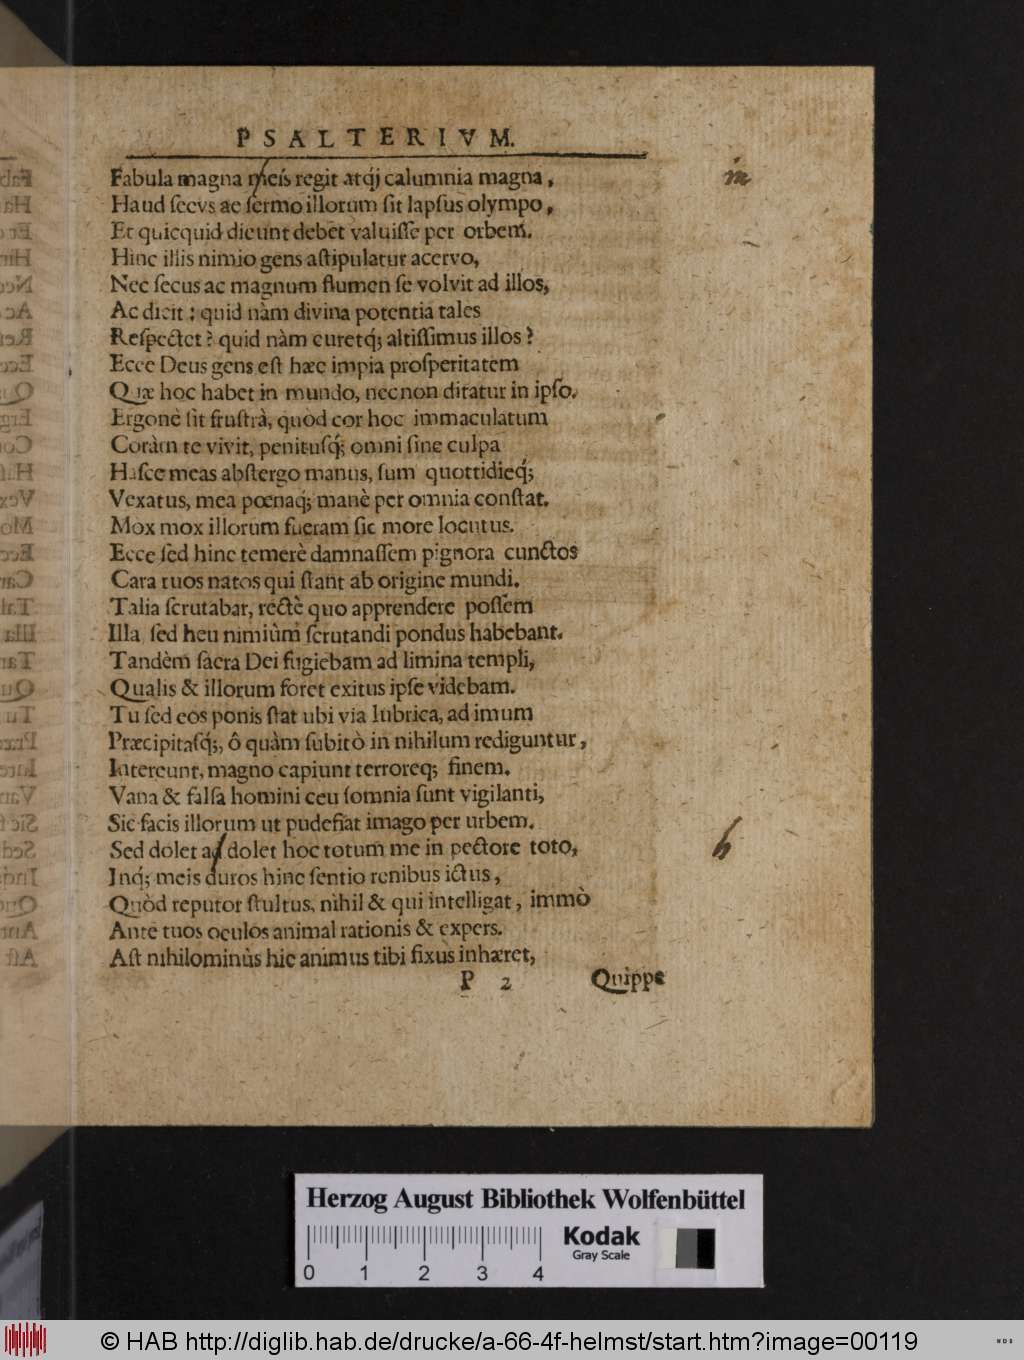 PSALTERIVM.
Fabula magna meis regit atq́; calumnia magna,
in
Haud ſecvs ac ſermo illorum ſit lapſus olympo,
Et quicquid dicunt debet valuiſſe per orbem.
Hinc illis nimio gens aſtipulatur acervo,
Nec ſecus ac magnum flumen ſe volvit ad illos,
Ac dicit: quid nàm divina potentia tales
Reſpectet? quid nàm curetq́; altiſſimus illos?
Ecce Deus gens eſt hæc impia proſperitatem
Quæ hoc habet in mundo, necnon ditatur in ipſo.
Ergonè ſit fruſtrà, quòd cor hoc immaculatum
Coràm te vivit, penituſq́; omni ſine culpa
Haſce meas abſtergo manus, ſum quottidieq́;
Vexatus, mea pœnaq́; manè per omnia conſtat.
Mox mox illorum fueram ſic more locutus.
Ecce ſed hinc temerè damnaſſem pignora cunctos
Cara tuos natos qui ſtant ab origine mundi.
Talia ſcrutabar, rectè quo apprendere poſſem
Illa, ſed heu nimiùm ſcrutandi pondus habebant.
Tandèm ſacra Dei fugiebam ad limina templi,
Qualis & illorum foret exitus ipſe videbam.
Tu ſed eos ponis ſtat ubi via lubrica, ad imum
Præcipitaſq́;, ô quàm ſubitò in nihilum rediguntur,
Intereunt, magno capiunt terroreq́; finem.
Vana & falſa homini ceu ſomnia ſunt vigilanti,
Sic facis illorum ut pudefiat imago per urbem.
Sed dolet ad dolet hoc totum me in pectore toto,
h
Inq́; meis duros hinc ſentio renibus ictus,
Quòd reputor ſtultus, nihil & qui intelligat, immò
Ante tuos oculos animal rationis & expers.
Aſt nihilominùs hic animus tibi fixus inhæret,
P 2 Quippe
Herzog August Bibliothek Wolfenbüttel
Kodak
Gray Scale
0 1 2 3 4
© HAB http://diglib.hab.de/drucke/a-66-4f-helmst/start.htm?image=00119